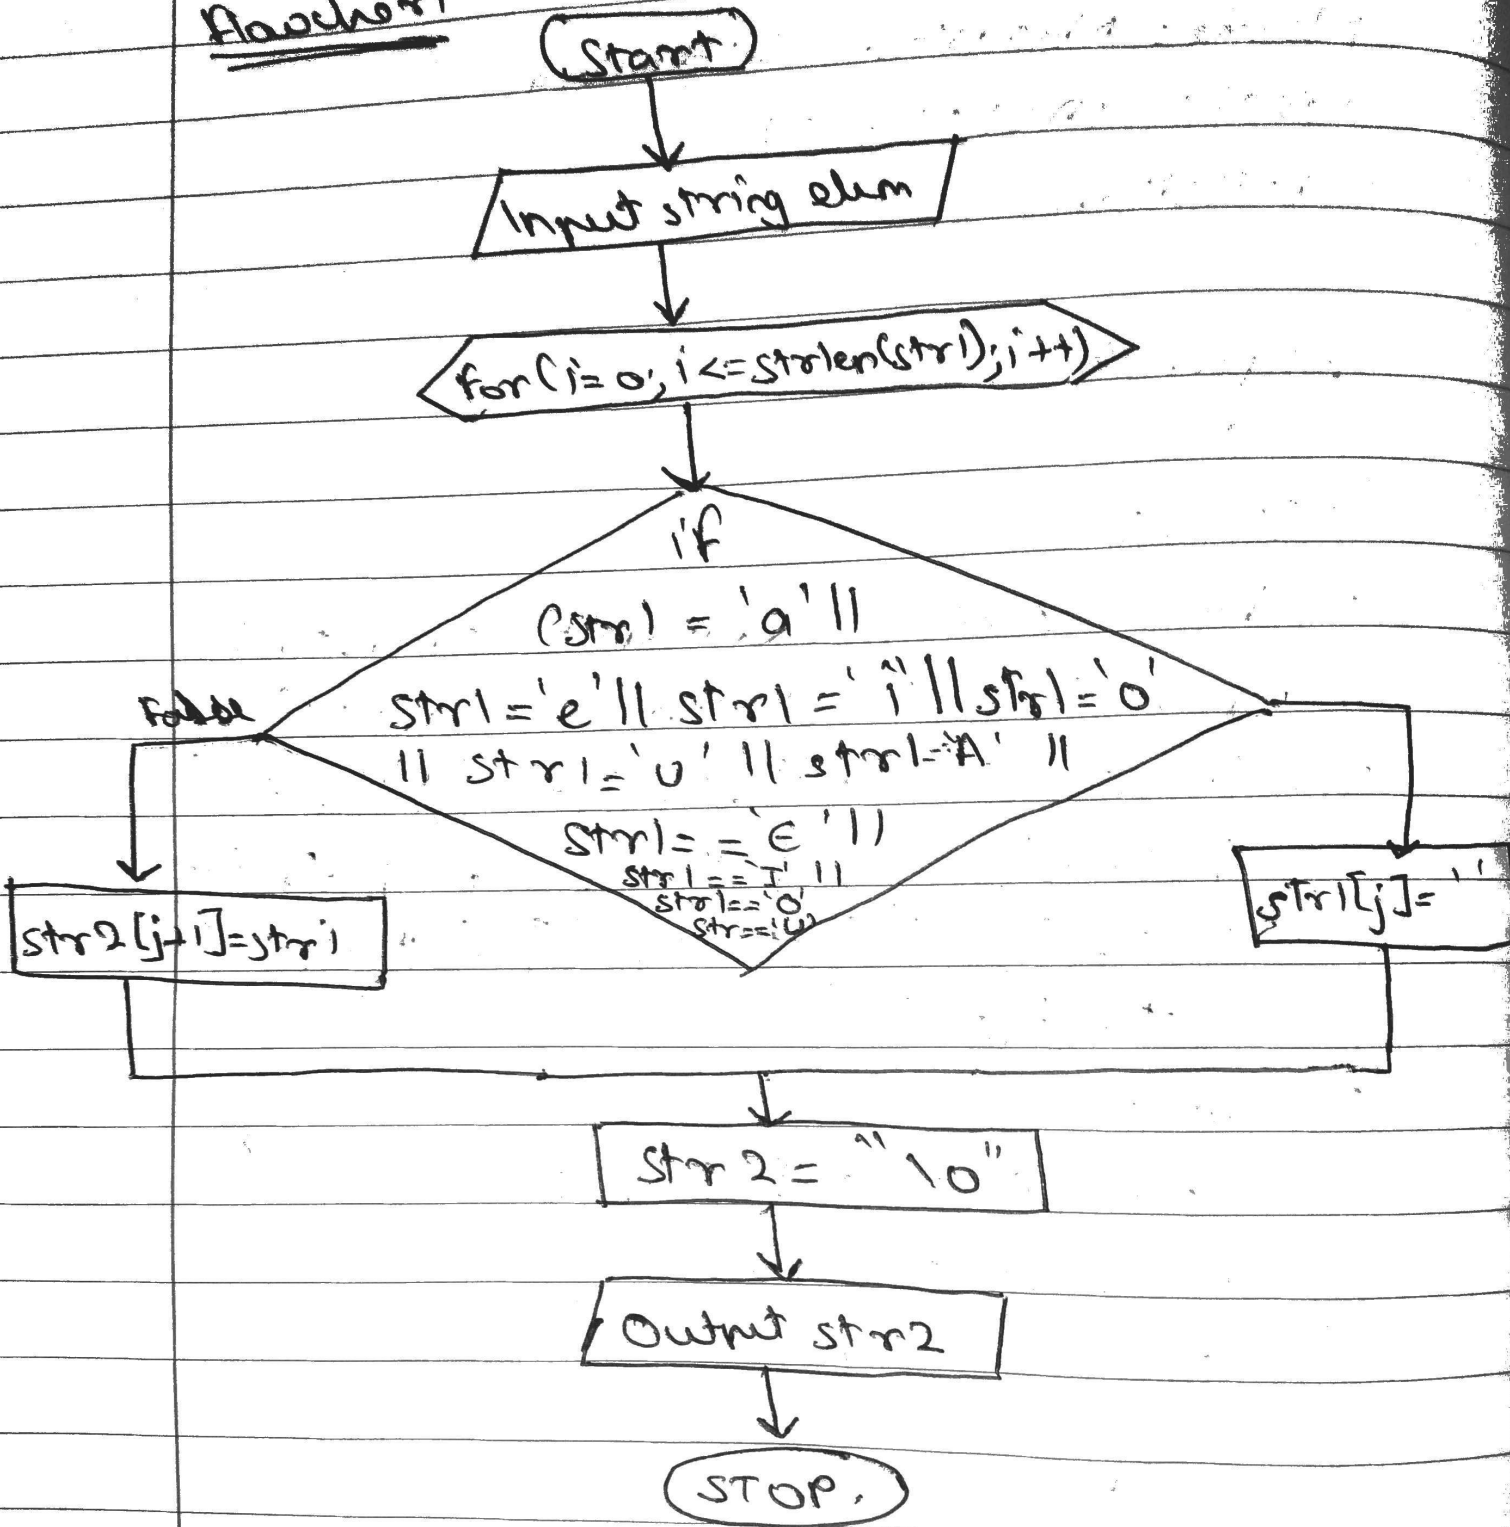 Start
Input string elem
for(i=0; i<=strlen(str1); i++)
if
(str1 = 'a' ||
str1 = 'e' || str1 = 'i' || str1 = 'o'
|| str1 = 'u' || str1 = 'A' ||
str1 = = 'E' ||
str1 == 'I' ||
str1 == 'O'
str == 'U'
False
str2[j+1]=str1
str1[j]= ' '
str2 = "\0"
Output str2
STOP.